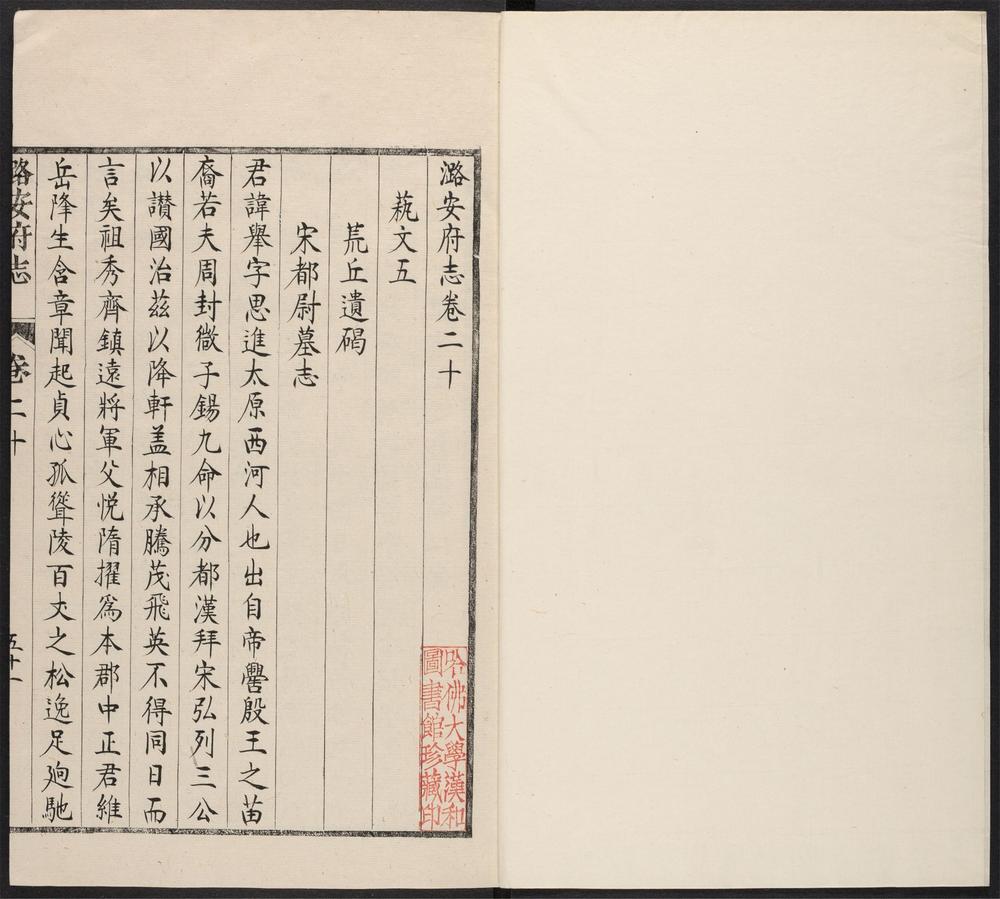 潞安府志卷二十
蓻文五
荒丘遺碣
宋都尉墓志
君諱舉字思進太原西河人也出自帝嚳殷王之苗
裔若夫周封微子錫九命以分都漢拜宋弘列三公
以讃國治茲以降軒盖相承騰茂飛英不得同日而
言矣祖秀齊鎮遠將軍父悦隋擢為本郡中正君維
岳降生含章闡起貞心孤聳陵百丈之松逸足逈馳
潞安府志
卷二十
哈佛大學漢和
圖書館珍藏印